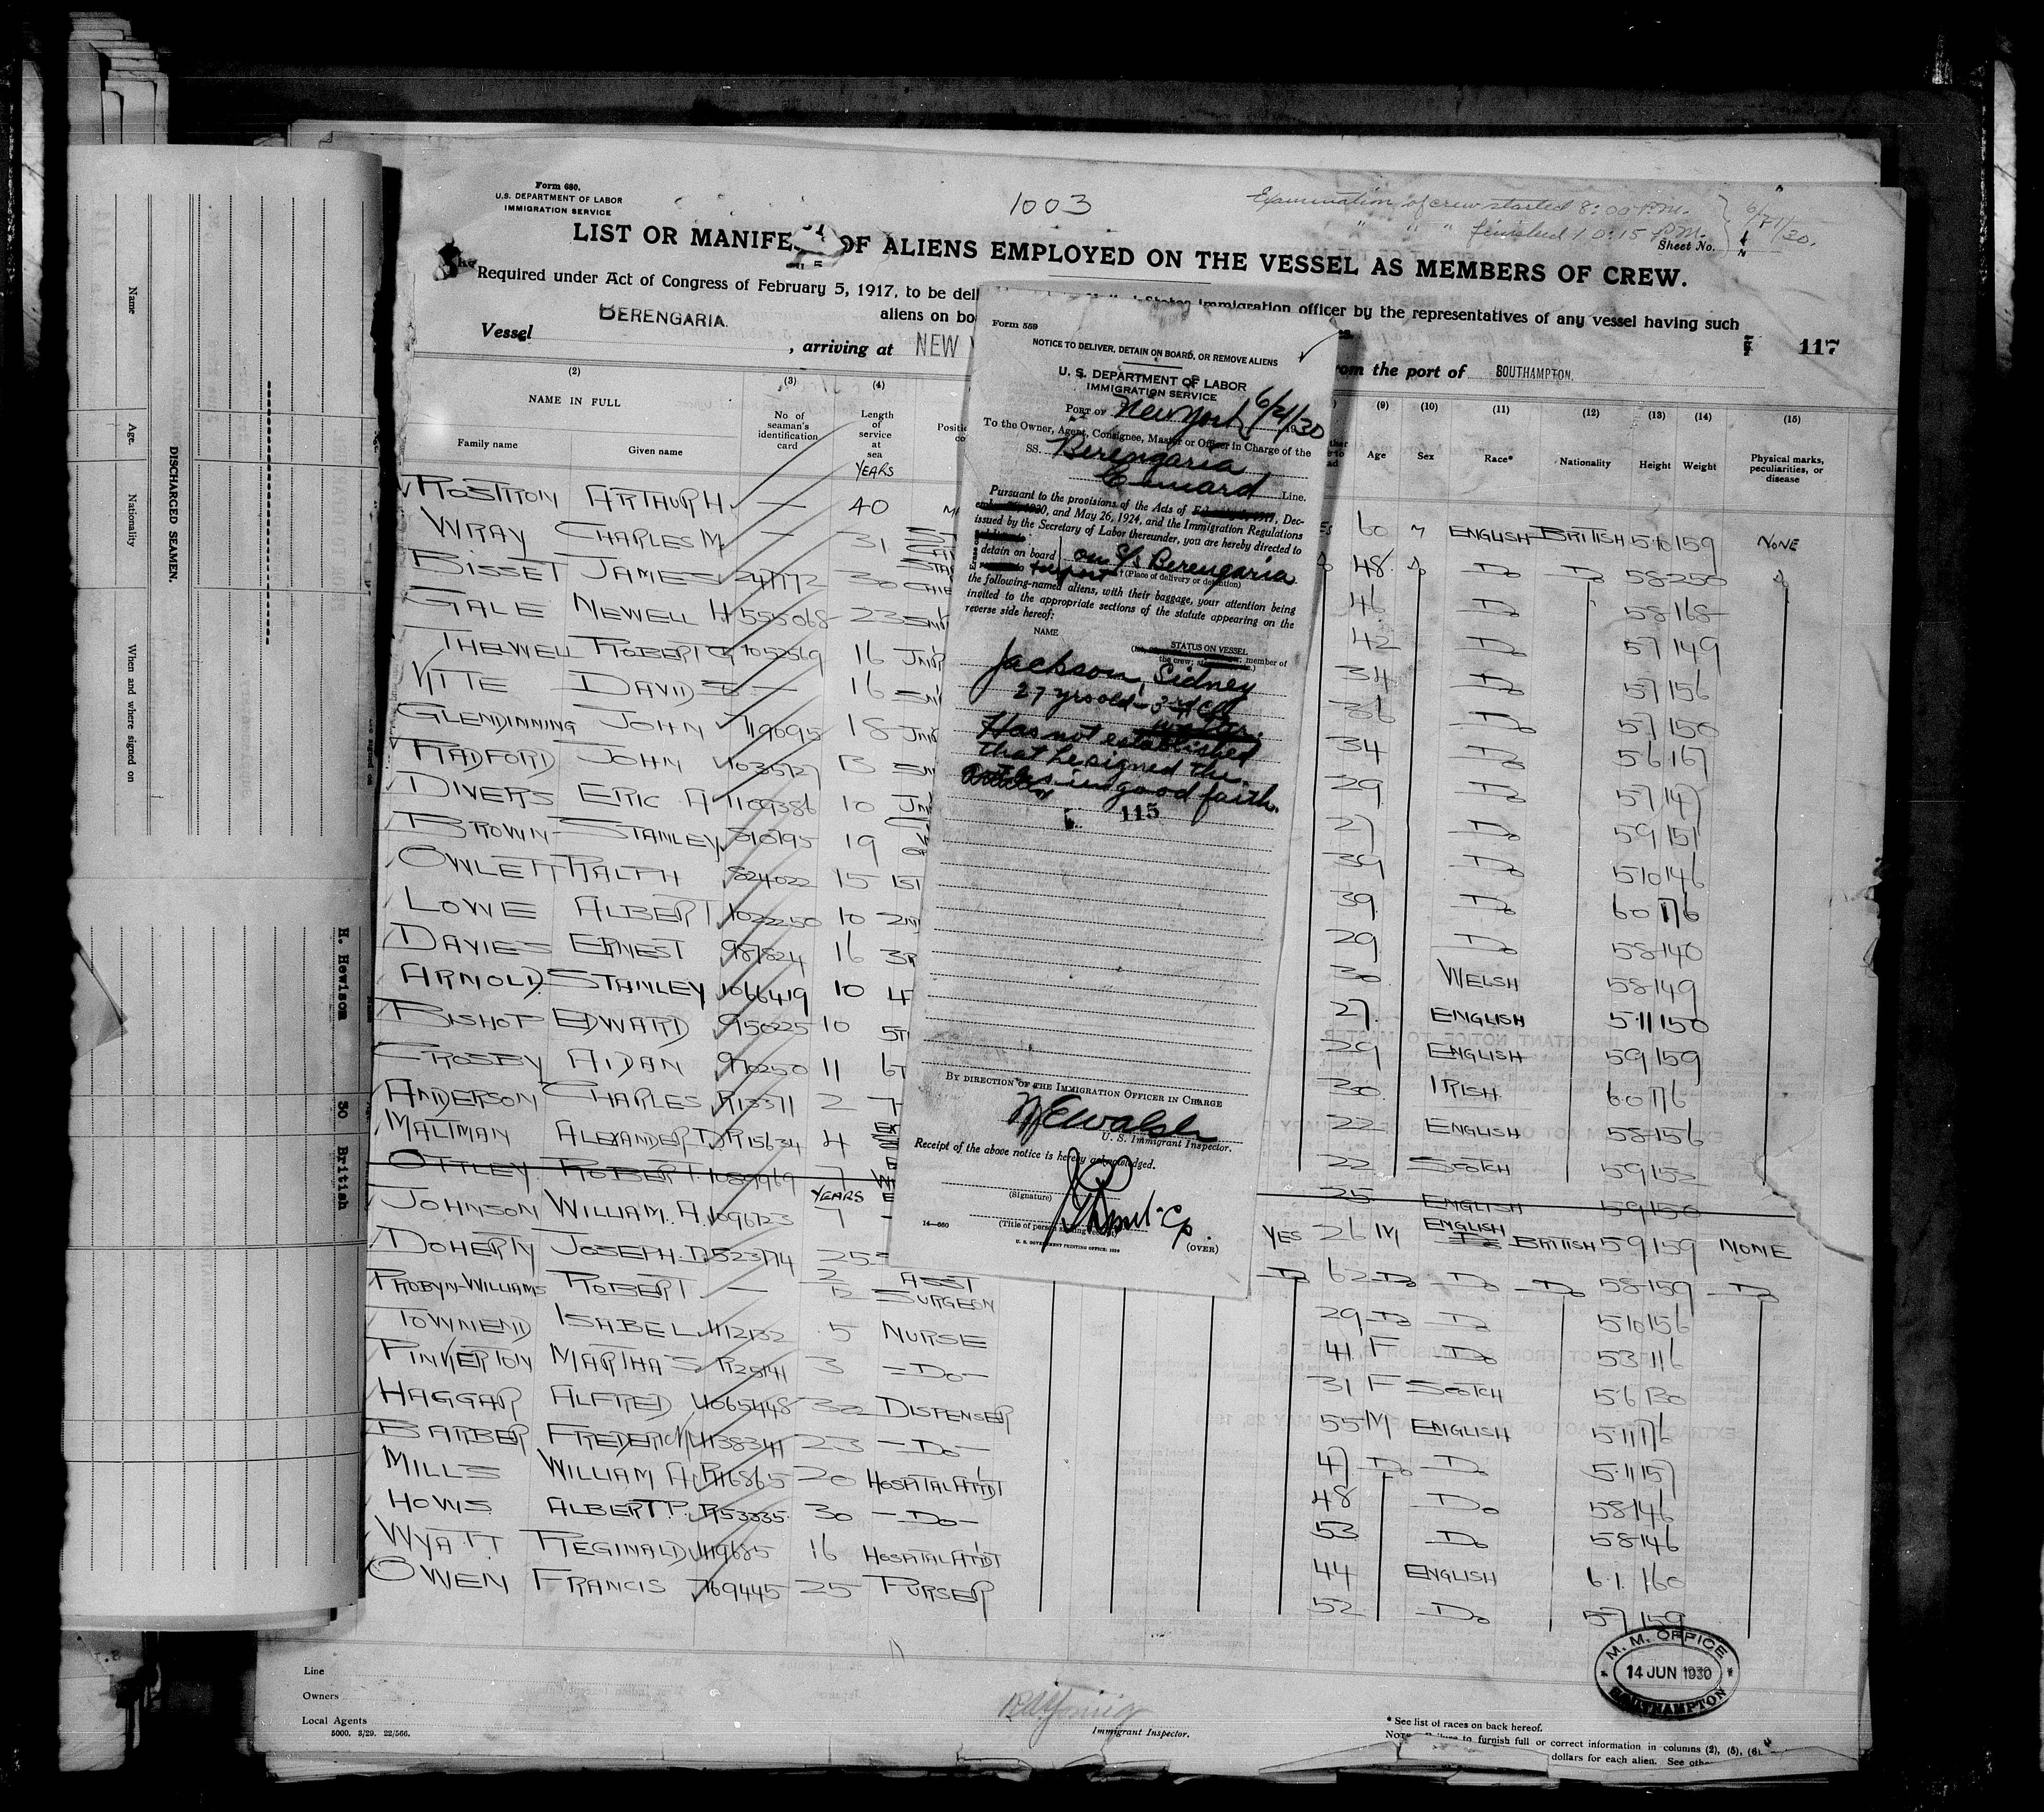 Form 680.
U.S. DEPARTMENT OF LABOR
IMMIGRATION SERVICE
1003
Examination of crew started 8:00 P.M.
" " " finished 10:15 P.M.
6/21/30.
Sheet No.
LIST OR MANIFE OF ALIENS EMPLOYED ON THE VESSEL AS MEMBERS OF CREW.
Required under Act of Congress of February 5, 1917, to be deli immigration officer by the representatives of any vessel having such
aliens on bo
Vessel BERENGARIA. , arriving at NEW om the port of SOUTHAMPTON.
117
(2) (3) (4) (9) (10) (11) (12) (13) (14) (15)
NAME IN FULL
Family name Given name
No. of seaman's identification card
Length of service at sea
YEARS
Age Sex Race* Nationality Height Weight
Physical marks, peculiarities, or disease
ROSTRON ARTHUR H. — 40
WRAY CHARLES M — 31
BISSET JAMES 30
GALE NEWELL H 555068 23
THELWELL ROBERT G 1052569 16 JNR
VITTE DAVID — 16
GLENDINNING JOHN 719695 18
RADFORD JOHN 1035727 13
DIVERS ERIC A 1109386 10
BROWN STANLEY 19
OWLETT RALPH 824022 15 1ST
LOWE ALBERT 1022250 10
DAVIES ERNEST 987824 16
ARNOLD STANLEY 1066419 10
BISHOP EDWARD 950225 10
CROSBY AIDAN 970250 11
ANDERSON CHARLES R13371 2
MALTMAN ALEXANDER D R15634 4
OTTLEY ROBERT 1089969 7
YEARS
JOHNSON WILLIAM. A. 1096723 7
DOHERTY JOSEPH. D. 523714 25
PROBYN-WILLIAMS ROBERT — 2 ASST SURGEON
TOWNEND ISABEL 1112132 5 NURSE
PINKERTON MARTHA S R28141 3 — DO —
HAGGAR ALFRED 1065448 32 DISPENSER
BARBER FREDERICK 1138341 23 — DO —
MILLS WILLIAM A R116865 20 HOSPITAL ATTDT
HOWS ALBERT. P. R53335 30 — DO —
WYATT REGINALD 1119685 16 HOSPITAL ATTDT
OWEN FRANCIS 769445 25 PURSER
60 M ENGLISH BRITISH 5·10 159 NONE
48 Do Do Do 5·8 250 Do
46 Do 5·8 168
42 Do 5·7 149
34 Do 5·7 156
36 Do 5·7 150
34 Do 5·6 167
29 Do 5·7 147
27 Do 5·9 151
39 Do 5·10 146
39 Do 6·0 176
29 Do 5·8 140
30 WELSH 5·8 149
27 ENGLISH 5·11 150
29 ENGLISH 5·9 159
30 IRISH 6·0 176
22 ENGLISH 5·8 156
22 SCOTCH 5·9 152
25 ENGLISH 5·9 150
YES 26 M ENGLISH BRITISH 5·9 159 NONE
Do 62 Do Do Do 5·8 159 Do
29 Do Do 5·10 156
41 F Do 5·3 116
31 F SCOTCH 5·6 130
55 M ENGLISH 5·11 176
47 Do Do 5·11 157
48 Do 5·8 146
53 Do 5·8 146
44 ENGLISH 6·1 160
52 Do 5·7 159
Form 559
NOTICE TO DELIVER, DETAIN ON BOARD, OR REMOVE ALIENS
U. S. DEPARTMENT OF LABOR
IMMIGRATION SERVICE
PORT OF New York 6/21/30
To the Owner, Agent, Consignee, Master or Officer in Charge of the
SS. Berengaria
Cunard Line.
Pursuant to the provisions of the Acts of Dec-
1920, and May 26, 1924, and the Immigration Regulations
issued by the Secretary of Labor thereunder, you are hereby directed to
detain on board on S/S Berengaria
(Place of delivery or detention)
the following-named aliens, with their baggage, your attention being
invited to the appropriate sections of the statute appearing on the
reverse side hereof:
NAME
STATUS ON VESSEL
member of
the crew;
Jackson, Sidney
27 yrs old — 3rd Cl
waiter.
Has not established
that he signed the
Articles in good faith.
115
BY DIRECTION OF THE IMMIGRATION OFFICER IN CHARGE
U. S. Immigrant Inspector.
Receipt of the above notice is hereby acknowledged.
(Signature)
(Title of person
14—660
U. S. GOVERNMENT PRINTING OFFICE: 1929
(OVER)
Name
Age.
Nationality
When and where signed on
DISCHARGED SEAMEN.
H. Hewison 30 British
Line
Owners
Local Agents
5000. 3/29. 22/566.
Immigrant Inspector.
M. M. OFFICE
14 JUN 1930
SOUTHAMPTON
* See list of races on back hereof.
to furnish full or correct information in columns (2), (5), (6)
dollars for each alien. See